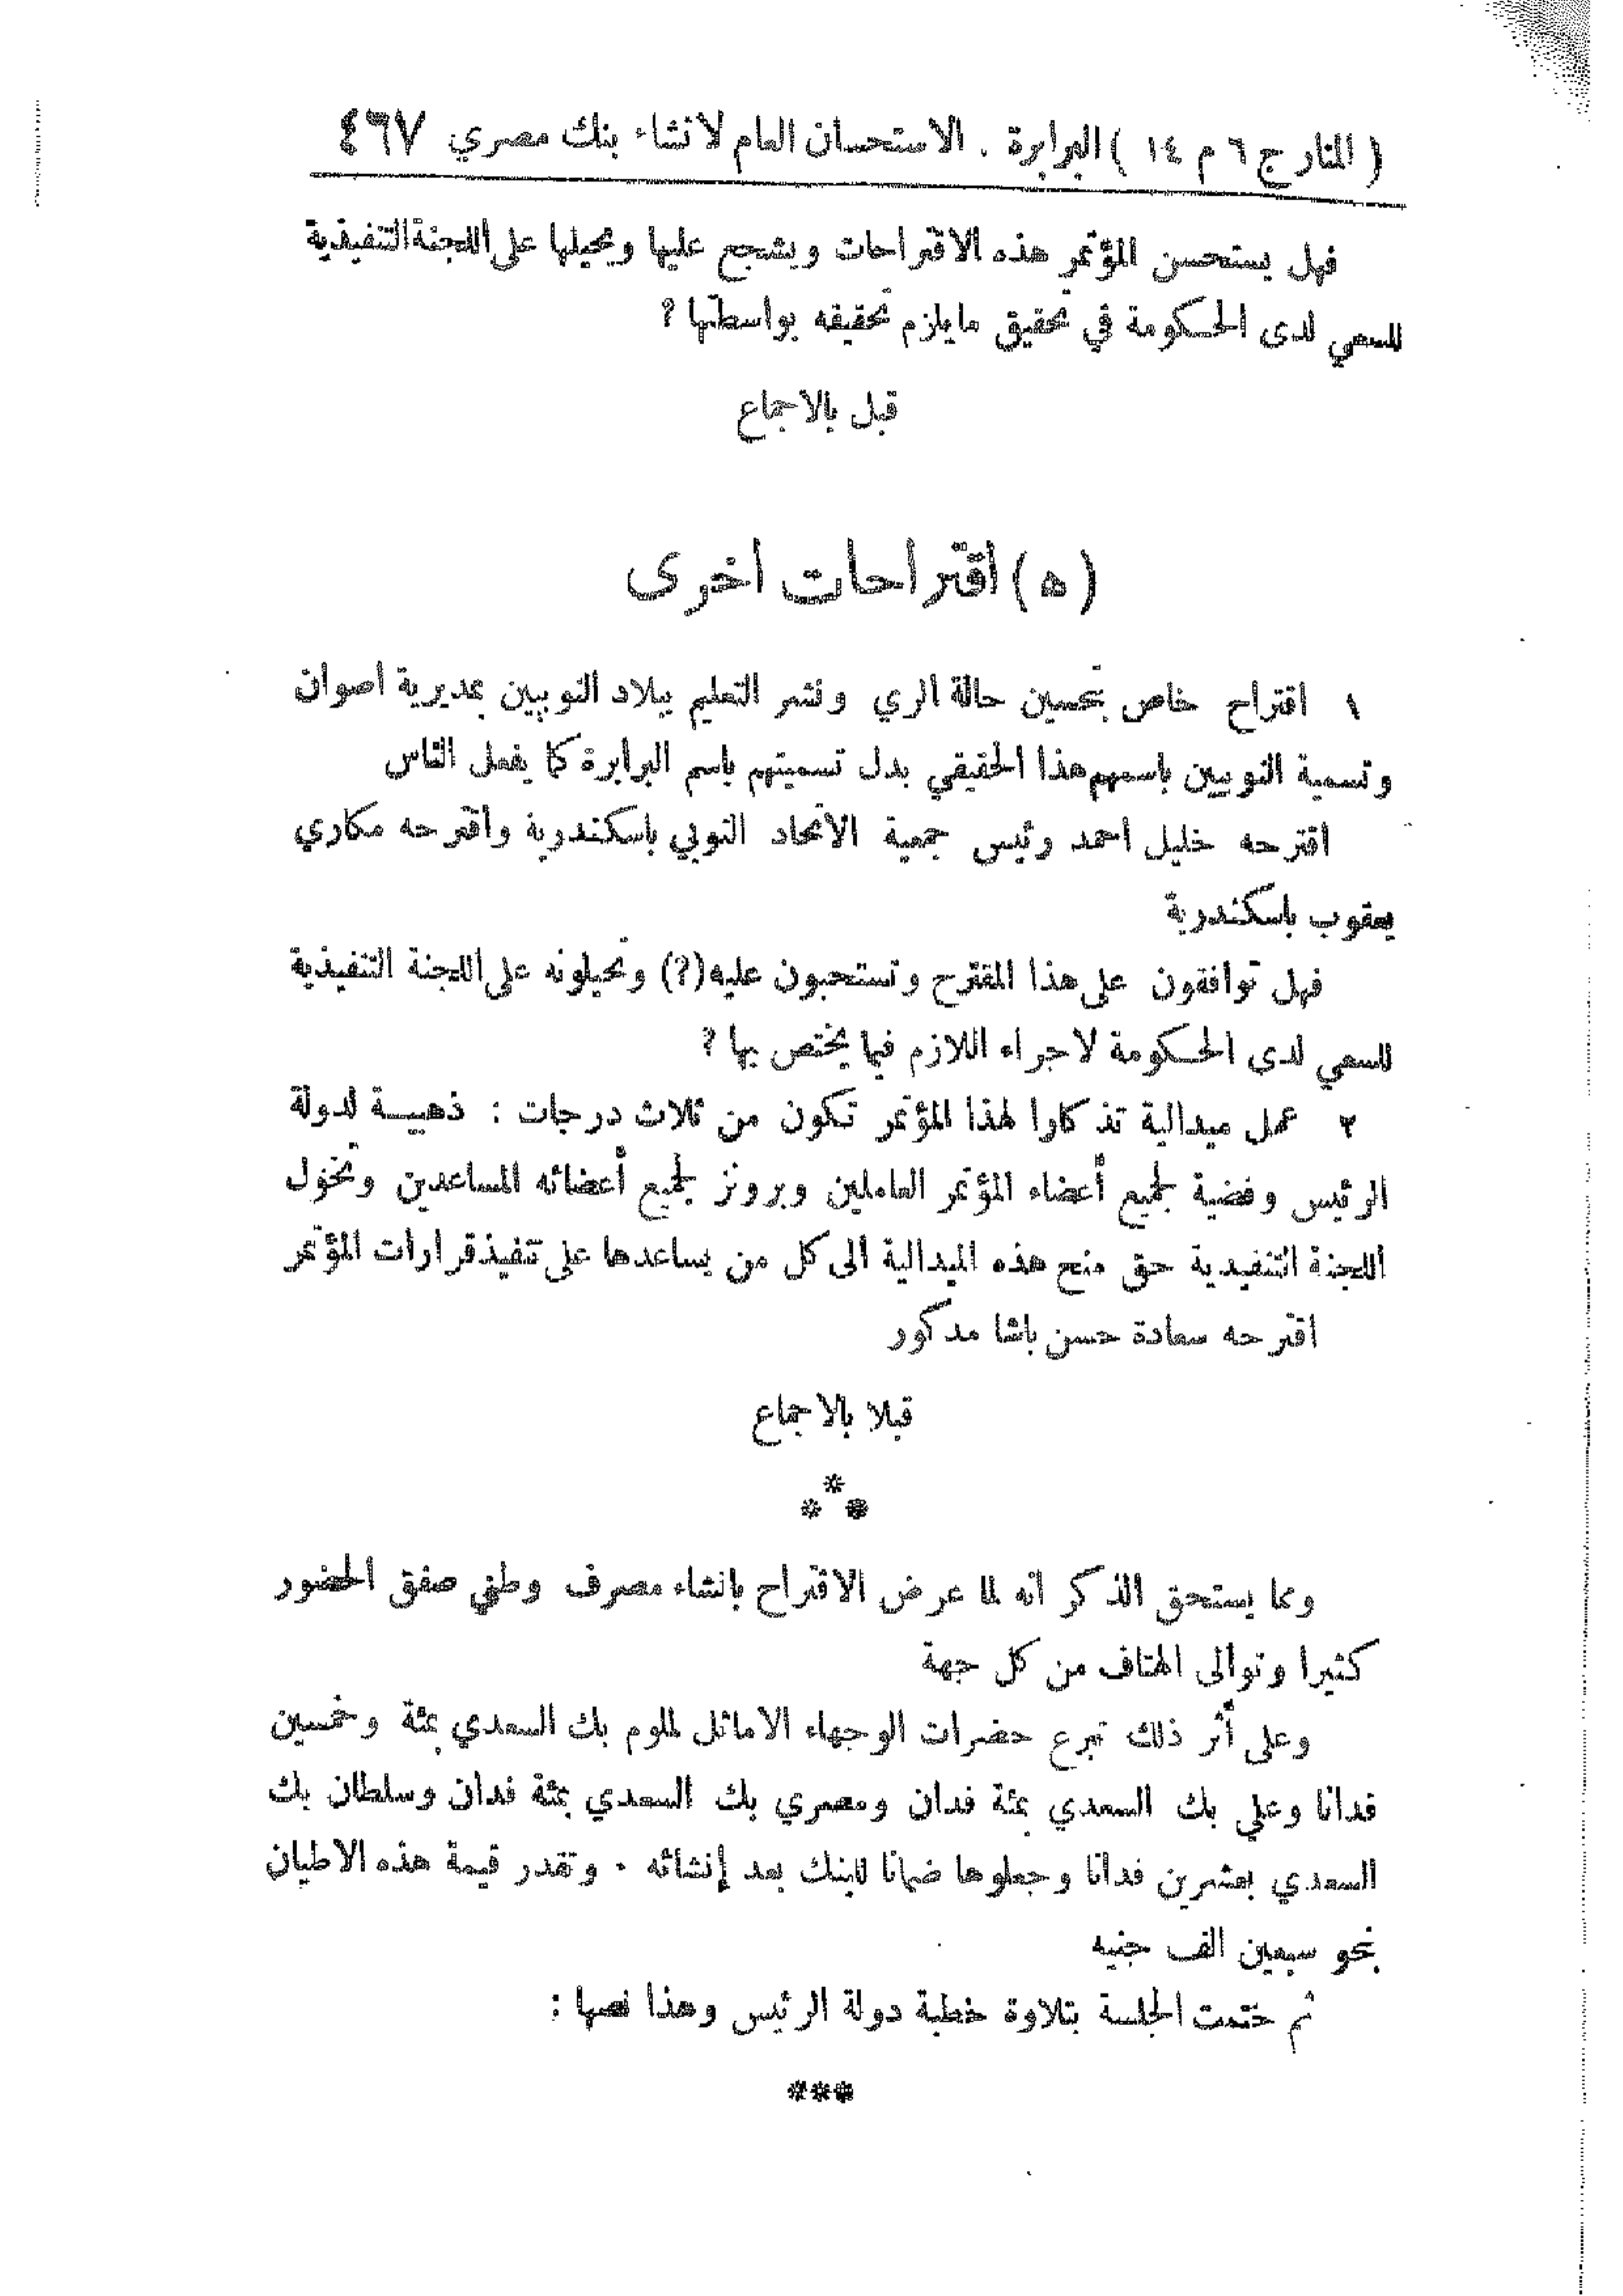 ( المنار ج ٦ م ١٤ ) البرابرة . الاستحسان العام لانشاء بنك مصري ٤٦٧
فهل يستحسن المؤتمر هذه الاقتراحات ويشجع عليها ويحيلها على اللجنة التنفيذية
للسعي لدى الحكومة في تحقيق مايلزم تحقيقه بواسطتها ?
قبل بالاجماع
( ٥ ) اقتراحات اخرى
١ اقتراح خاص بتحسين حالة الري ونشر التعليم ببلاد النوبيين بمديرية اصوان
وتسمية النوبيين باسمهم هذا الحقيقي بدل تسميتهم باسم البرابرة كما يفعل الناس
اقترحه خليل احمد رئيس جمعية الاتحاد النوبي باسكندرية واقترحه مكاري
يعقوب باسكندرية
فهل توافقون على هذا المقترح وتستحبون عليه(?) وتحيلونه على اللجنة التنفيذية
للسعي لدى الحكومة لاجراء اللازم فيما يختص بها ?
٢ عمل ميدالية تذكارا لهذا المؤتمر تكون من ثلاث درجات : ذهبية لدولة
الرئيس وفضية لجميع أعضاء المؤتمر العاملين وبرونز لجميع أعضائه المساعدين وتخول
اللجنة التنفيدية حق منح هذه الميدالية الى كل من يساعدها على تنفيذ قرارات المؤتمر
اقترحه سعادة حسن باشا مدكور
قبلا بالاجماع
* * *
ومما يستحق الذكر انه لما عرض الاقتراح بانشاء مصرف وطني صفق الحضور
كثيرا وتوالى الهتاف من كل جهة
وعلى أثر ذلك تبرع حضرات الوجهاء الاماثل لملوم بك السعدي بمئة وخمسين
فدانا وعلي بك السعدي بمئة فدان ومصري بك السعدي بمئة فدان وسلطان بك
السعدي بعشرين فدانا وجعلوها ضمانا للبنك بعد إنشائه . وتقدر قيمة هذه الاطيان
بنحو سبعين الف جنيه
ثم ختمت الجلسة بتلاوة خطبة دولة الرئيس وهذا نصها :
***